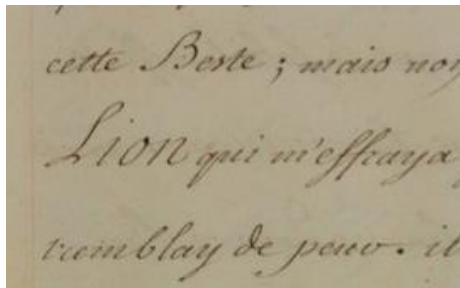 cette Beste; mais non
Lion qui m'effraya
tremblay de peur. il